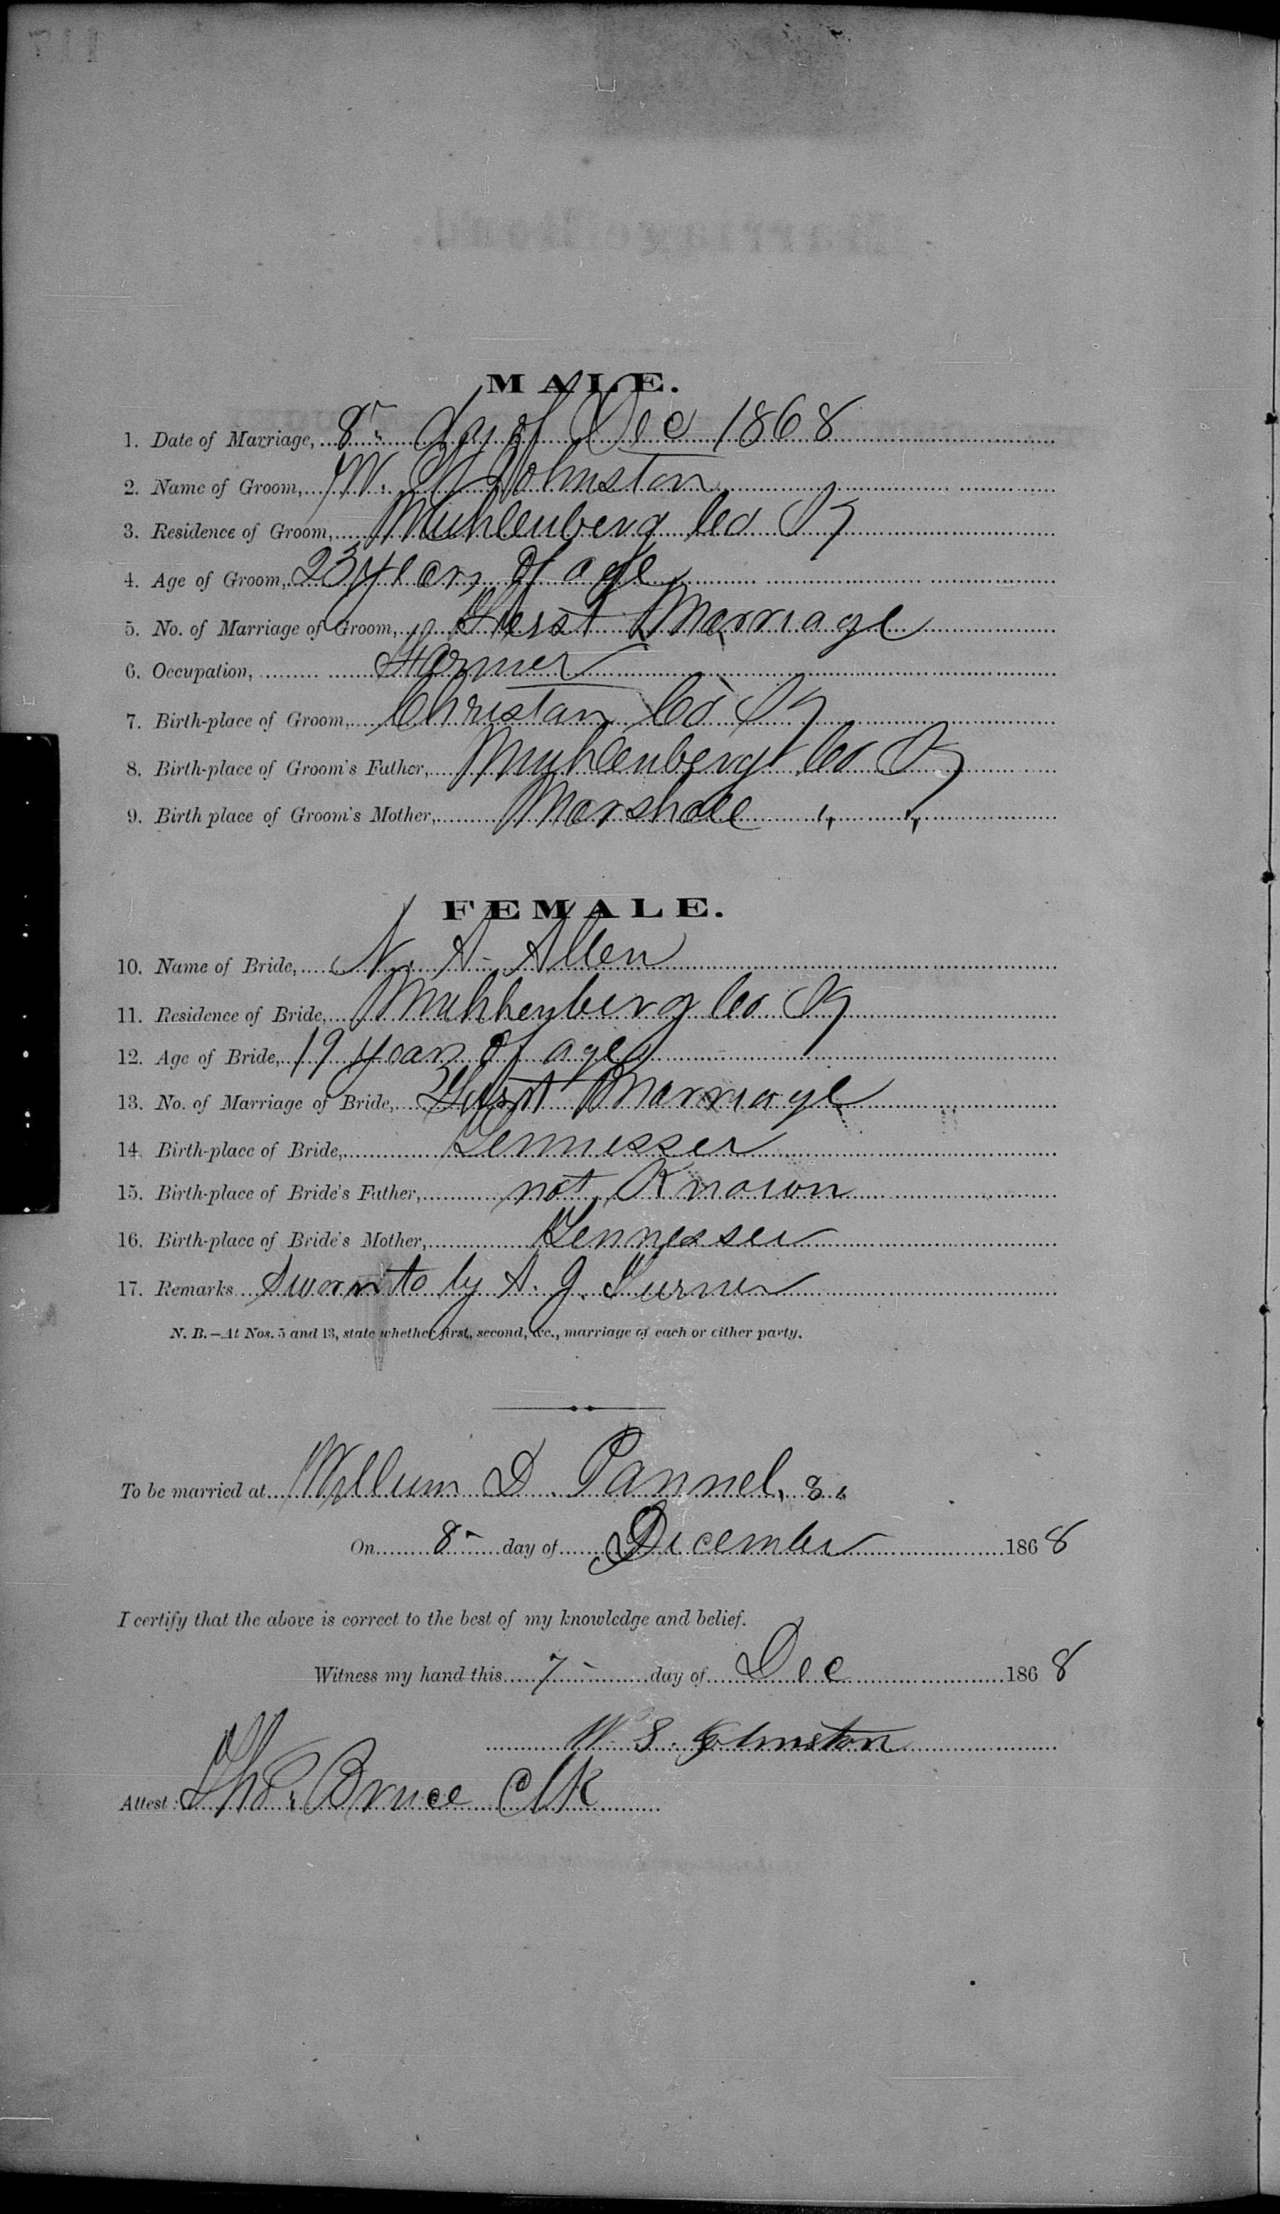 MALE.
1. Date of Marriage, 8 day of Dec 1868
2. Name of Groom, W. Johnston
3. Residence of Groom, Muhlenberg Co Ky
4. Age of Groom, 23 years of age
5. No. of Marriage of Groom, First Marriage
6. Occupation, Farmer
7. Birth-place of Groom, Christan Co Ky
8. Birth-place of Groom's Father, Muhlenberg Co Ky
9. Birth place of Groom's Mother, Marshall " "
FEMALE.
10. Name of Bride, N. A. Allen
11. Residence of Bride, Muhlenberg Co Ky
12. Age of Bride, 19 years of age
13. No. of Marriage of Bride, First Marriage
14. Birth-place of Bride, Tennessee
15. Birth-place of Bride's Father, not Known
16. Birth-place of Bride's Mother, Tennessee
17. Remarks Sworn to by A. J. Turner
N. B.—At Nos. 5 and 13, state whether first, second, &c., marriage of each or either party.
To be married at Willum D. Pannel,s.
On 8 day of December 1868
I certify that the above is correct to the best of my knowledge and belief.
Witness my hand this 7 day of Dec 1868
W. S. Johnston
Attest: Tho. Bruce Clk